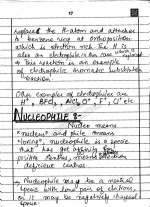 replaced the H-atom and attaches
to benzene ring at ortho position
which is electron rich. The H is
also an electrophile in this case which is replaced
→ This reaction is an example
of electrophilic aromatic substitution
reaction.
Other examples of electrophiles are
H⁺, BF₃, AlCl₃, Cl⁺ etc
NUCLEOPHILE :-
Nucleo means
"nucleus" and phile means
"loving", nucleophile is a specie
that has got affinity for
positive centres
deficient center.
Nucleophile may be a neutral
specie with lone pair of electrons,
or it may be negatively charged
specie.